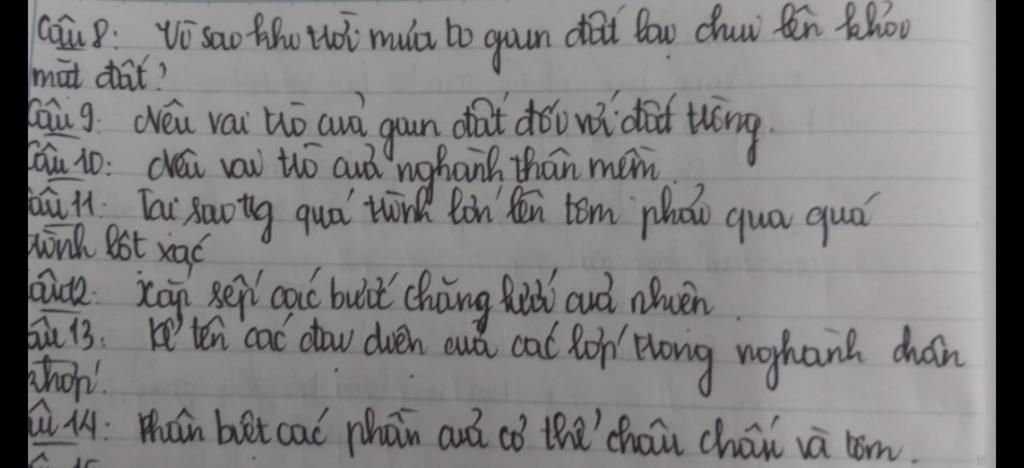 Câu 8: Vì sao khi trời mưa to giun đất lại chui lên khỏi
mặt đất?
Câu 9: Nêu vai trò của giun đất đối với đất trồng.
Câu 10: Nêu vai trò của nghành thân mềm.
Câu 11: Tại sao tg quá trình lớn lên tôm phải qua quá
trình lột xác
Câu 12: Xắp sếp các bước chăng lưới của nhiện.
Câu 13: Kể tên các đại diện của các lớp trong nghành chân
khớp.
Câu 14: Phân biệt các phần của cơ thể châu chấu và tôm.